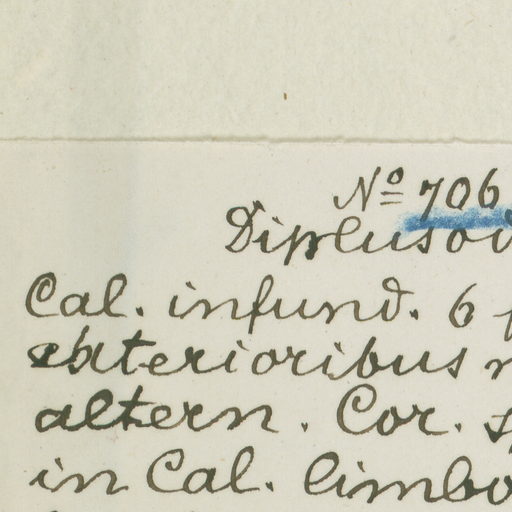 Nº 706
Diplusod
Cal. infund. 6
exterioribus
altern. Cor.
in Cal. limbo